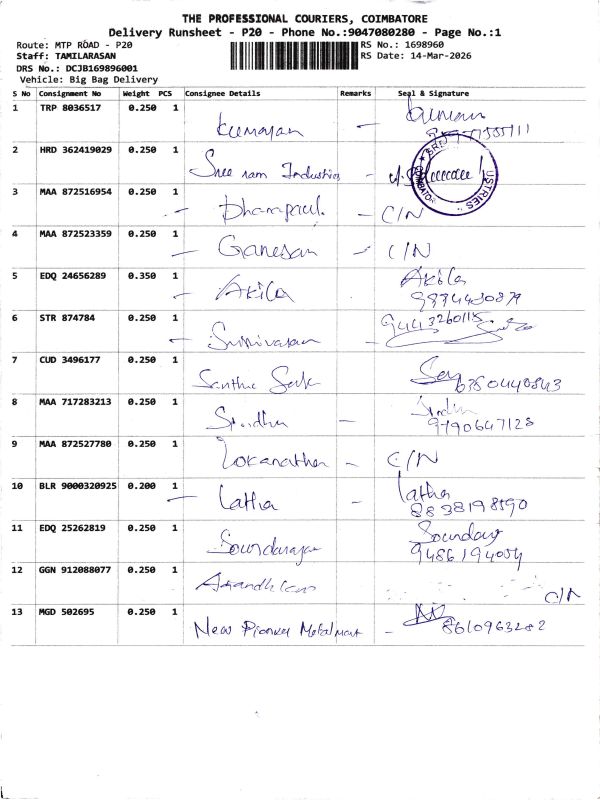 THE PROFESSIONAL COURIERS, COIMBATORE
Delivery Runsheet - P20 - Phone No.:9047080280 - Page No.:1
Route: MTP ROAD - P20
RS No.: 1698960
Staff: TAMILARASAN
RS Date: 14-Mar-2026
DRS No.: DCJB169896001
Vehicle: Big Bag Delivery
S No Consignment No Weight PCS Consignee Details Remarks Seal & Signature
1 TRP 8036517 0.250 1 Kumaran -
2 HRD 362419029 0.250 1 Sree ram Industries -
3 MAA 872516954 0.250 1 - Dharapaul - C/N
4 MAA 872523359 0.250 1 - Ganesan - C/N
5 EDQ 24656289 0.350 1 - Akila Akila
6 STR 874784 0.250 1 - Srinivasan 9443260115
7 CUD 3496177 0.250 1
8 MAA 717283213 0.250 1 Sindhu - Sindhu
9790647128
9 MAA 872527780 0.250 1 Lokanathan - C/N
10 BLR 9000320925 0.200 1 - Latha - Latha
8838198590
11 EDQ 25262819 0.250 1 Soundarajan Soundar
9486194054
12 GGN 912088077 0.250 1 C/N
13 MGD 502695 0.250 1 New Pioneer Metal mart -
8610963282